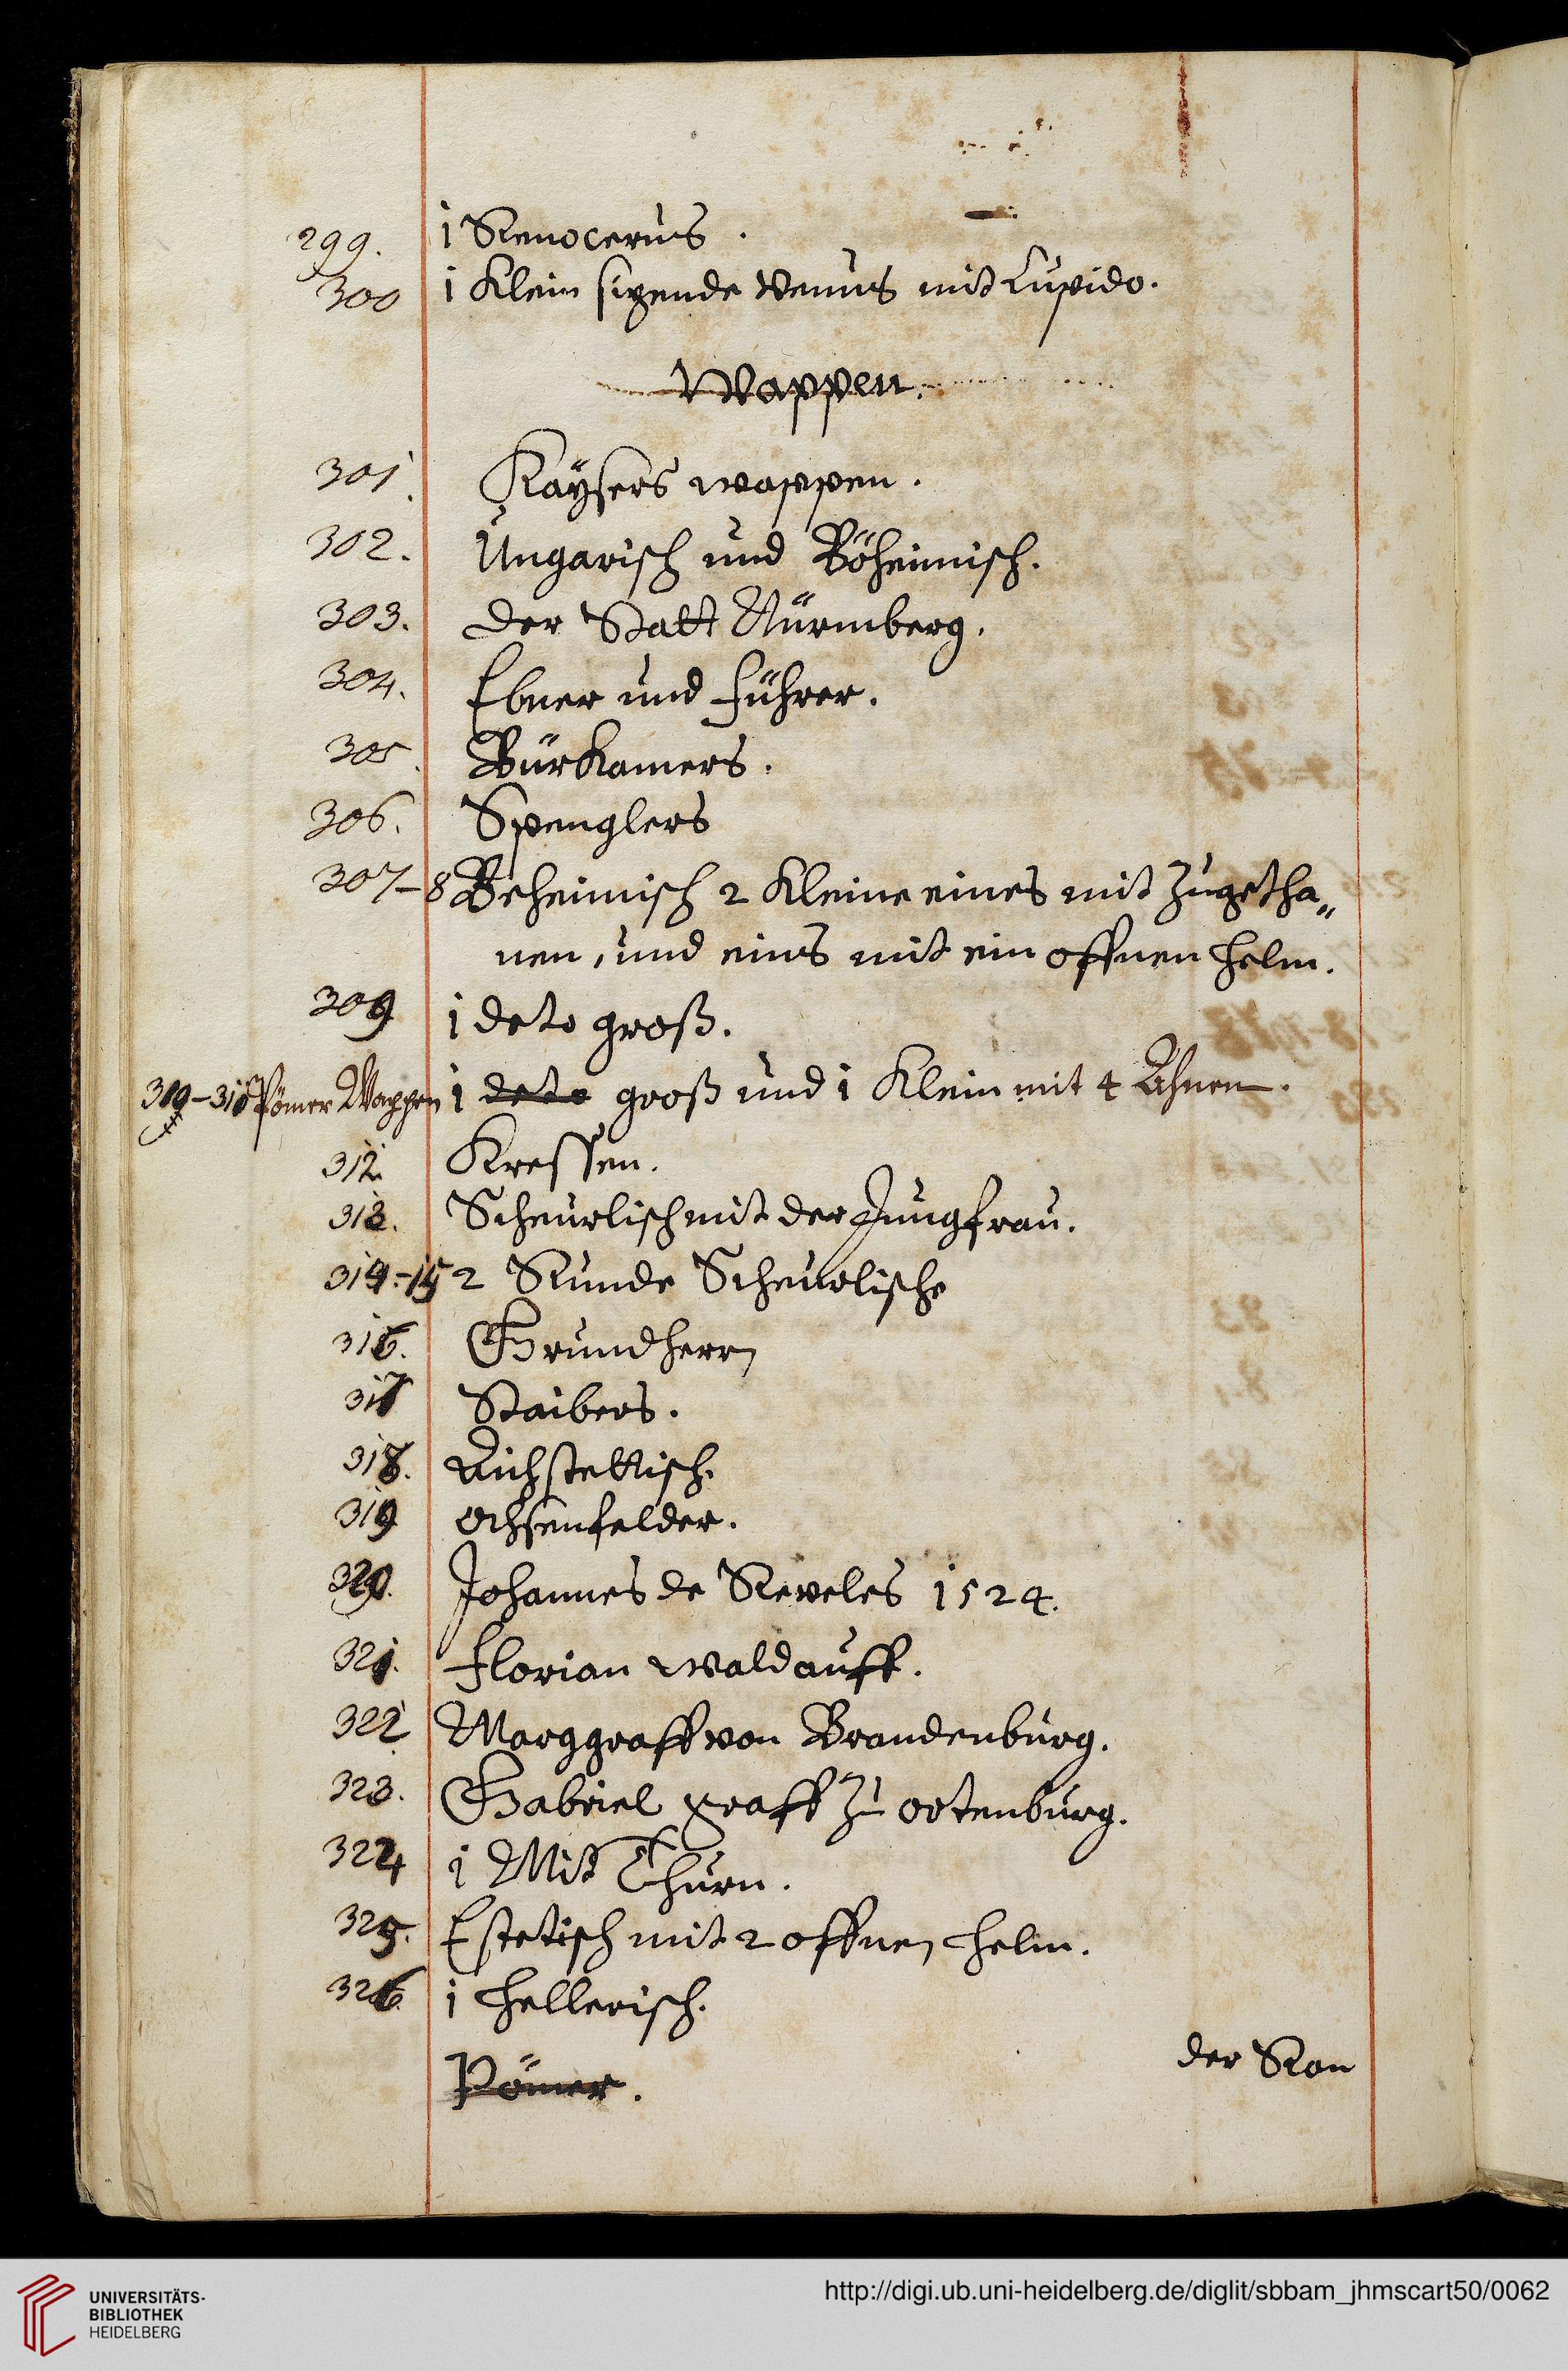 299. 1 Renocerus.
300 1 Klein sizende Venus mit Cupido.
Wappen.
301. Kaÿsers wappen.
302. Ungarisch und Böheimisch.
303. der Statt Nürmberg.
304. Ebner und Führer.
305. Bürkamers.
306. Spenglers
307-8 Beheimisch 2 Kleine eines mit zugetha„
nen, und eins mit ein offnen Helm.
309 1 deto groß.
310-311 Pömer Wappen 1 deto groß und 1 Klein mit 4 Ahnen.
312 Kressen.
313. Scheurlisch mit der Jungfrau.
314.-15 2 Runde Scheurlische
316. Grundherrn
317 Staibers.
318. Eichstettisch.
319 Ochsenfelder.
320. Johannes de Reveles 1524.
321. Florian Waldauff.
322 Marggraff von Brandenburg.
323. Gabriel graff zu ortenburg.
324 1 Mit Thurn.
325. Estetisch mit 2 offnen Helm.
326. 1 Hellerisch.
der Ron
Pömer.
UNIVERSITÄTS-
BIBLIOTHEK
HEIDELBERG
http://digi.ub.uni-heidelberg.de/diglit/sbbam_jhmscart50/0062